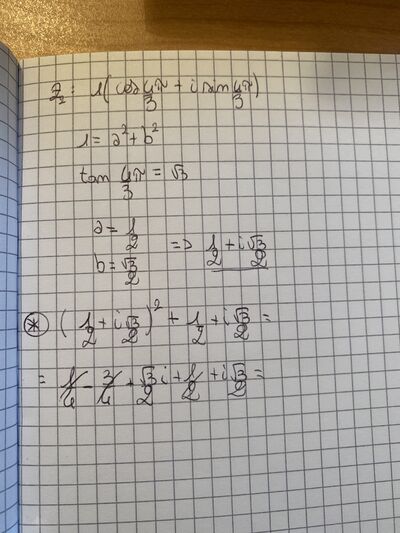 z₂: 1(cos 4π/3 + i sin 4π/3)
1 = a² + b²
tan 4π/3 = √3
a = 1/2
b = √3/2
=> 1/2 + i√3/2
* (1/2 + i√3/2)² + 1/2 + i√3/2 =
= 1/4 - 3/4 + √3/2 i + 1/2 + i√3/2 =